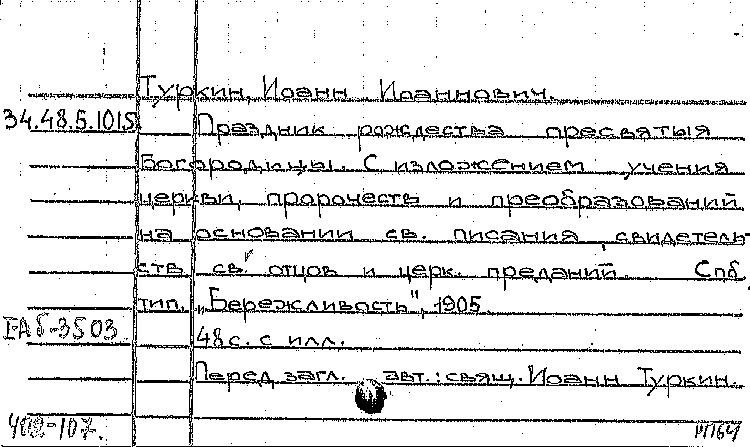 Туркин, Иоанн Иоаннович.
34.48.5.1015 Праздник рождества пресвятыя
Богородицы. С изложением учения
церкви, пророчеств и преобразований
на основании св. писания, свидетель-
ств св. отцов и церк. преданий. Спб.,
тип. „Бережливость", 1905
I-Аб-3503
48 с. с илл.
Перед загл. авт.: свящ. Иоанн Туркин.